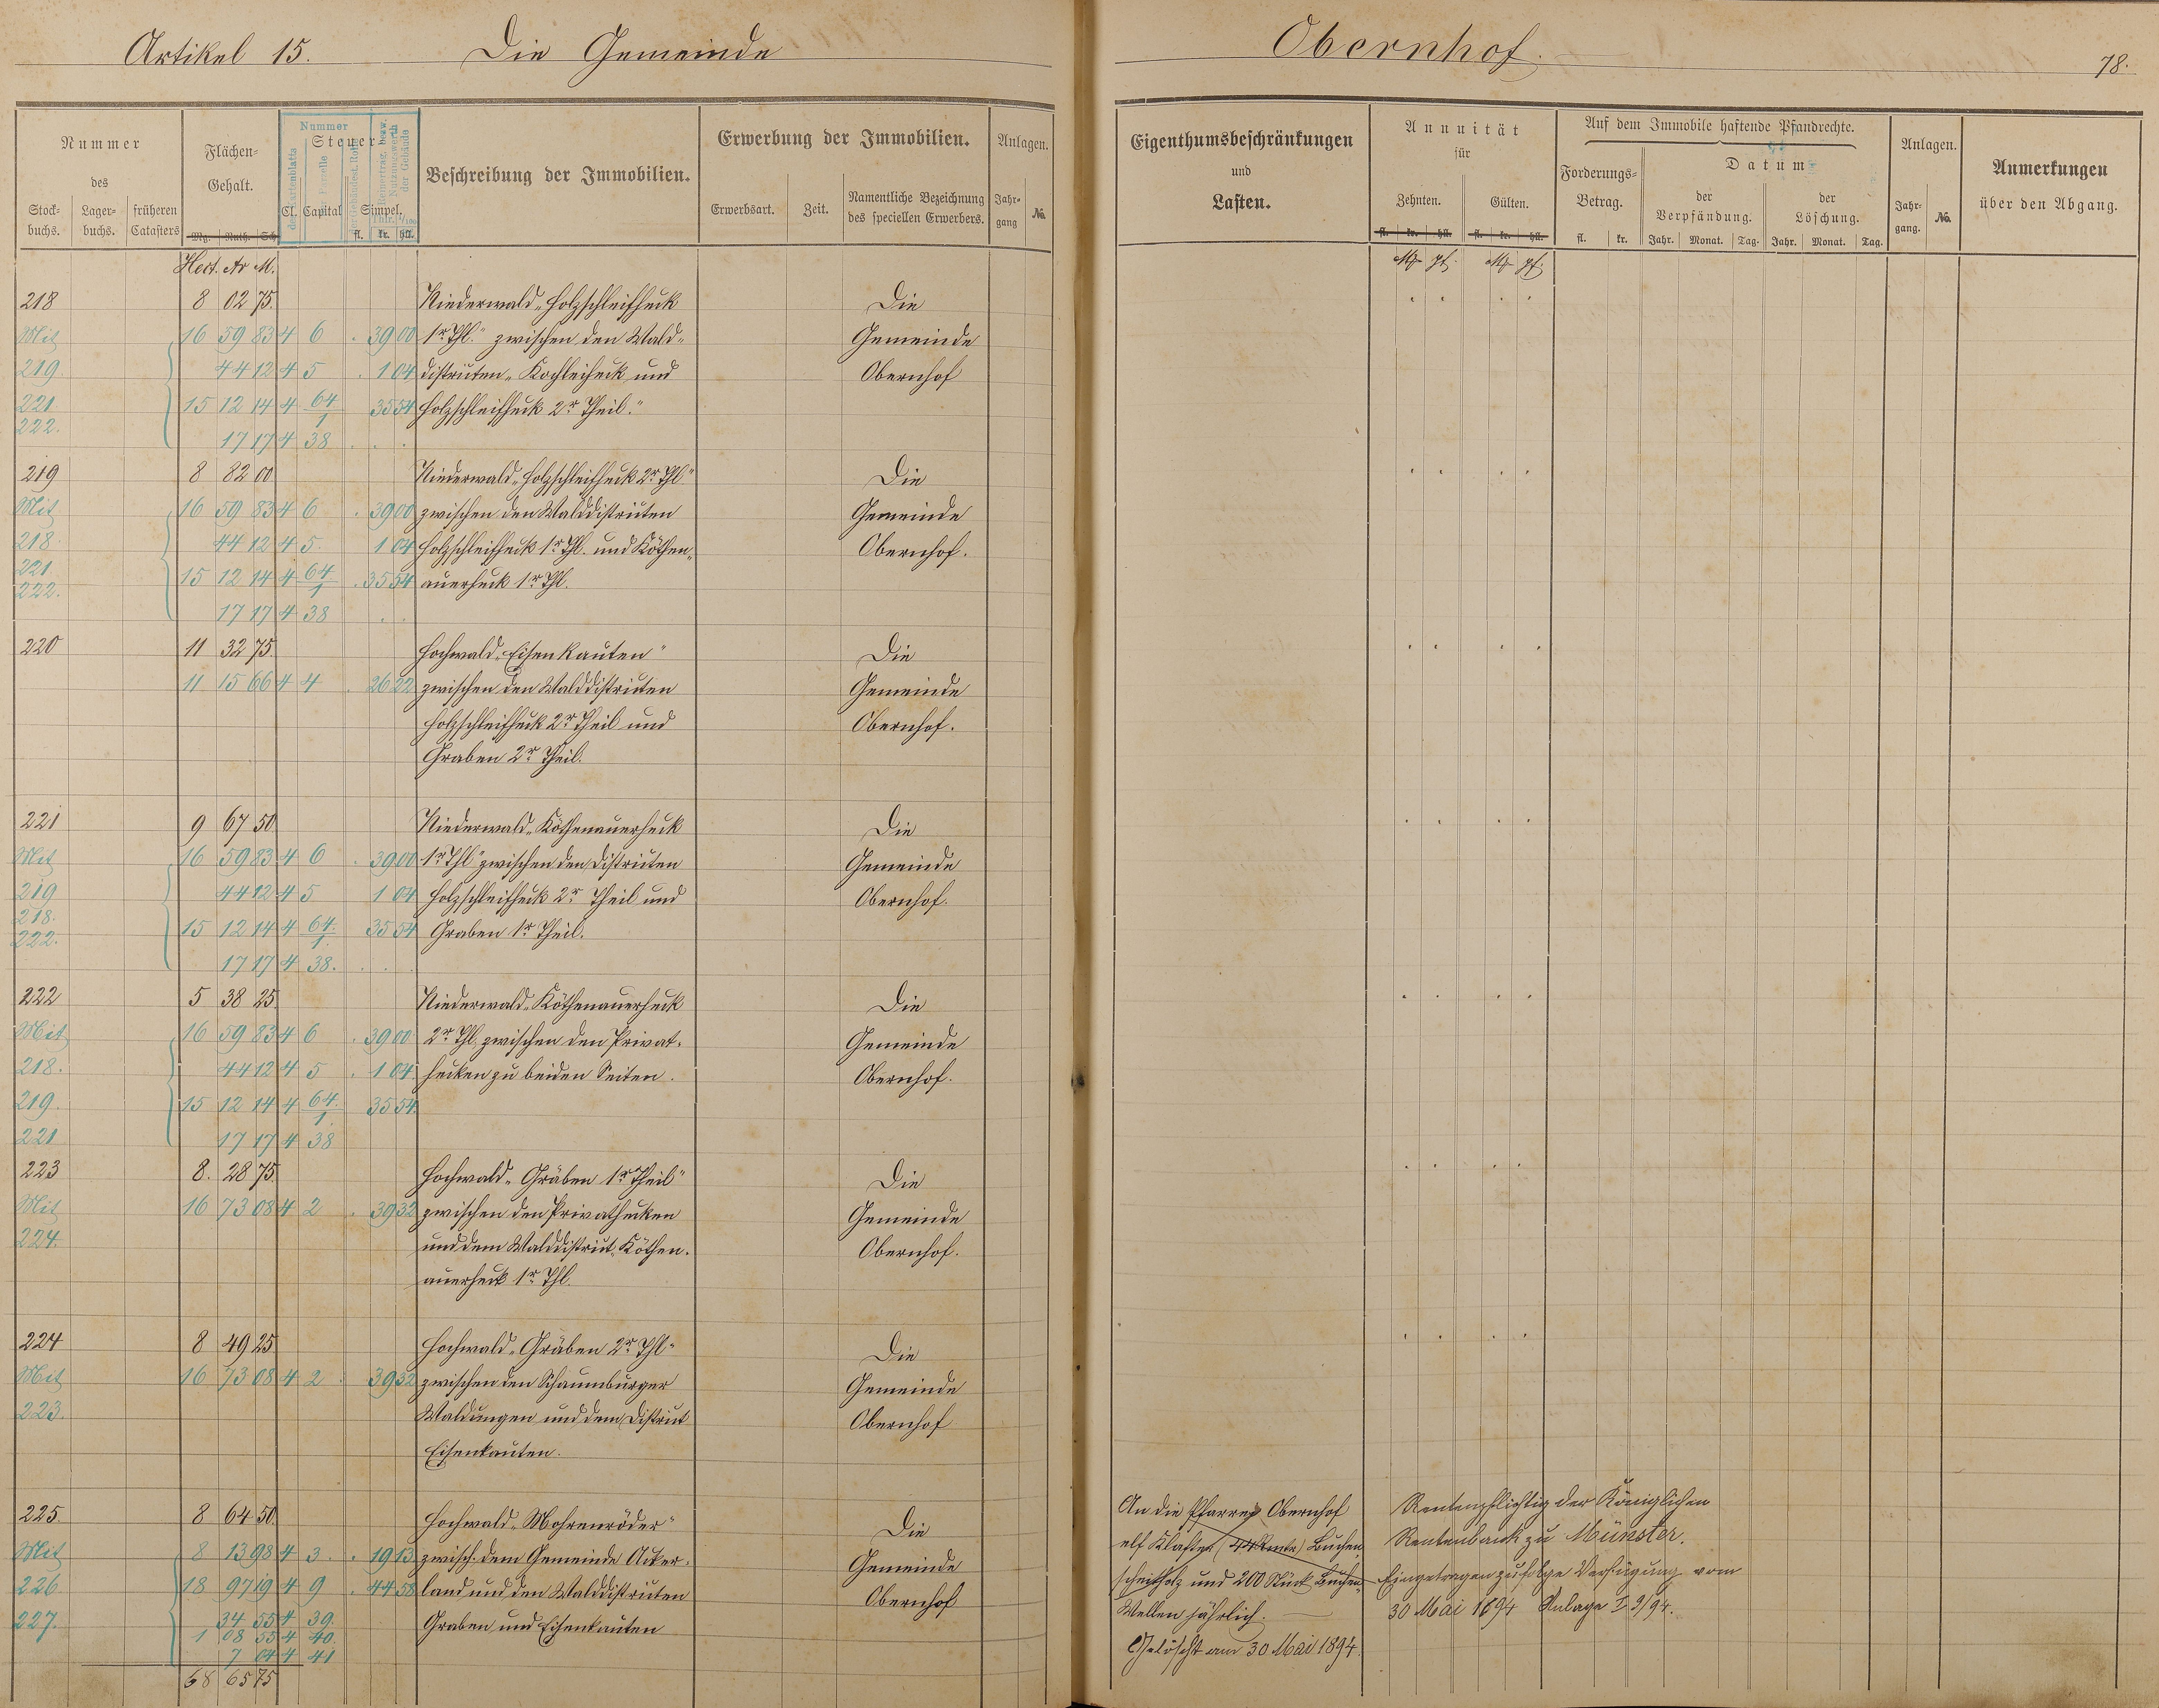 Artikel 15. Die Gemeinde
Obernhof.
78.
Nummer
des
Stock-
buchs.
Lager-
buchs.
früheren
Catasters
Flächen-
Gehalt.
Mg. Ruth. Sch.
Nummer
Steuer
des Kartenblatts
der Parzelle
Cl. Capital
Simpel.
fl. kr. hll.
Beschreibung der Immobilien.
Erwerbung der Immobilien.
Erwerbsart. Zeit.
Namentliche Bezeichnung
des speciellen Erwerbers.
Anlagen.
Jahr-
gang
No.
Eigenthumsbeschränkungen
und
Lasten.
Annuität
für
Zehnten. Gülten.
fl. kr. hll. fl. kr. hll.
Auf dem Immobile haftende Pfandrechte.
Forderungs-
Betrag.
fl. kr.
Datum
der
Verpfändung.
der
Löschung.
Jahr. Monat. Tag. Jahr. Monat. Tag.
Anlagen.
Jahr-
gang.
No.
Anmerkungen
über den Abgang.
Hect. Ar M.
M pf. M pf.
218 8 02 75. Niederwald „Holzschleifheck Die
Mit 16 59 83 4 6 . 39 00 1r Thl." zwischen den Wald- Gemeinde
219. 44 12 4 5 . 1 04 distrikten „Kochleiheck und Obernhof
221 15 12 14 4 64/1 35 54 Holzschleifheck 2r Theil."
222. 17 17 4 38 . . .
219 8 82 00 Niederwald „Holzschleifheck 2r Thl" Die
Mit 16 59 83 4 6 . 39 00 zwischen den Walddistrikten Gemeinde
218. 44 12 4 5. 1 04 Holzschleifheck 1r Thl. und Köthen- Obernhof.
221. 15 12 14 4 64/1 . 35 54 auerheck 1r Thl.
222. 17 17 4 38 . .
220 11 32 75. Hochwald „Eisenkauten" Die
11 15 66 4 4 . 26 22 zwischen den Walddistrikten Gemeinde
Holzschleifheck 2r Theil und Obernhof.
Graben 2r Theil.
221 9 67 50 Niederwald „Köthenauerheck Die
Mit 16 59 83 4 6 . 39 00 1r Thl" zwischen den Distrikten Gemeinde
219 44 12 4 5 1 04 Holzschleifheck 2r Theil und Obernhof.
218. 15 12 14 4 64/1 35 54 Graben 1r Theil.
222. 17 17 4 38. . . .
222 5 38 25 Niederwald „Köthenauerheck Die
Mit 16 59 83 4 6 . 39 00 2r Thl. zwischen den Privat- Gemeinde
218. 44 12 4 5 . 1 04 hecken zu beiden Seiten. Obernhof.
219. 15 12 14 4 64/1 35 54
221 17 17 4 38
223 8. 28 75 Hochwald „Gräben 1r Theil" Die
Mit 16 73 08 4 2 . 39 32 zwischen den Privathecken Gemeinde
224. und dem Walddistrikt „Köthen- Obernhof.
auerheck 1r Thl.
224 8 49 25 Hochwald „Gräben 2r Thl" Die
Mit 16 73 08 4 2 . 39 32 zwischen den Schaumburger Gemeinde
223. Waldungen und dem Distrikt Obernhof
Eisenkauten.
225. 8 64 50 Hochwald „Mohrenröder" Die
Mit 8 13 98 4 3. . 19 13 zwisch. dem Gemeinde Acker- Gemeinde
226 18 97 19 4 9 . 44 58 land und den Walddistrikten Obernhof
227. 34 55 4 39. Graben und Eisenkauten
1 08 55 4 40.
7 04 4 41
68 65 75
An die Pfarrei Obernhof
elf Klafter (44 Rmtr) Buchen
scheitholz und 200 Stück Buchen
Wellen jährlich.
Gelöscht am 30 Mai 1894.
Rentenpflichtig der Königlichen
Rentenbank zu Münster.
Eingetragen zufolge Verfügung vom
30 Mai 1894 Anlage I 9/94.